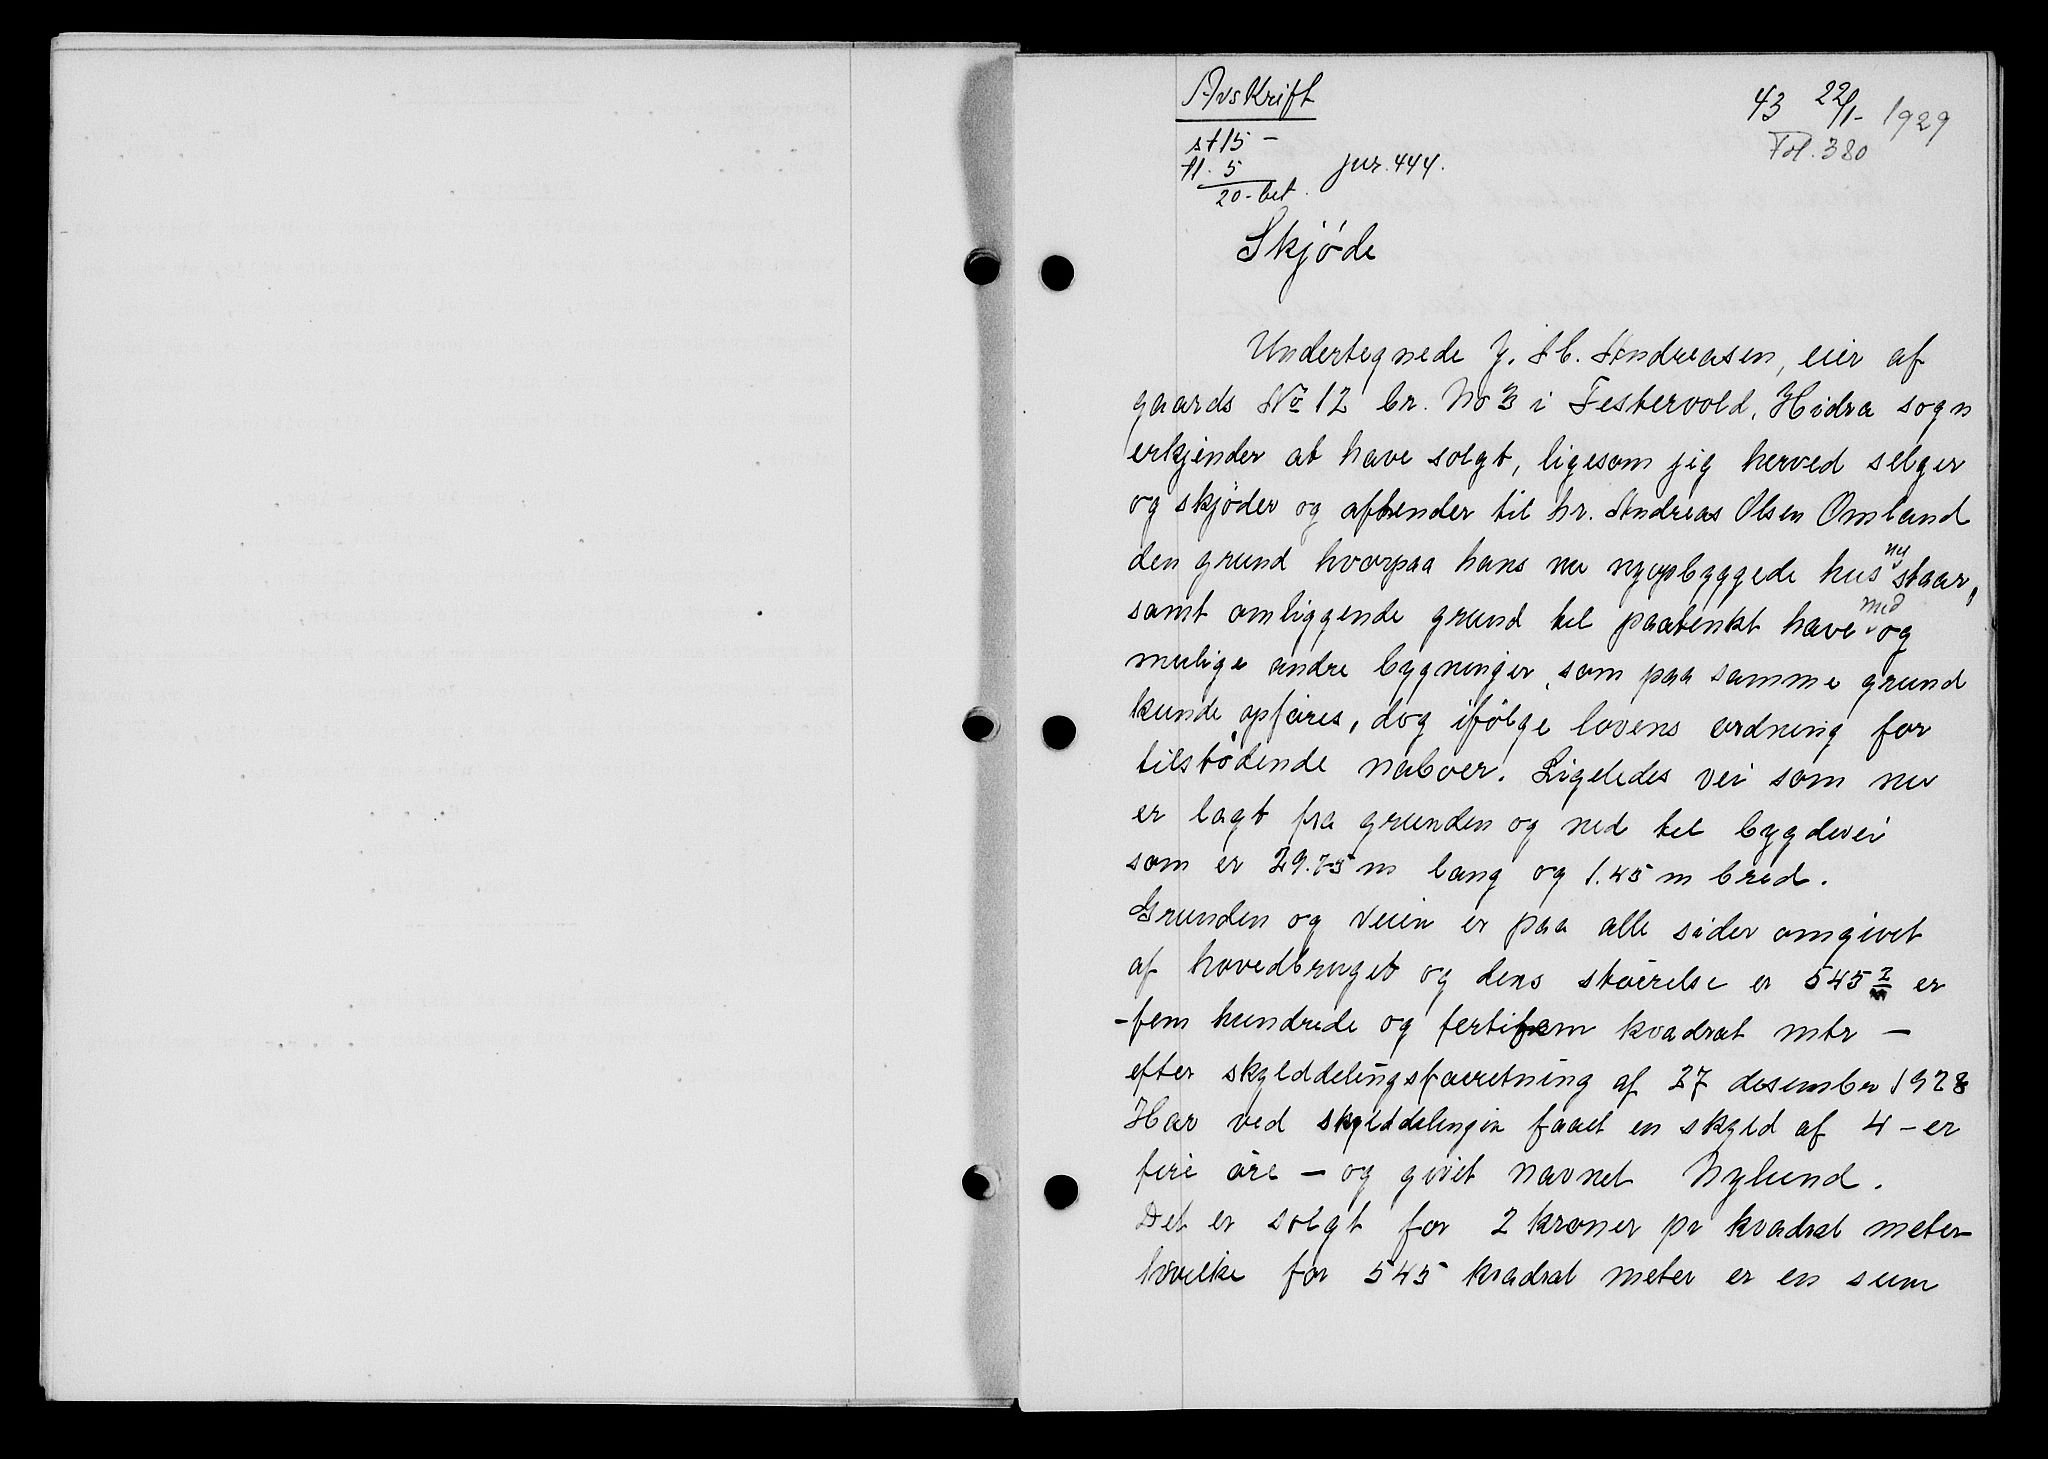 Avskrift
43 22/1- 1929
Fol. 380
st 15 -
tl. 5
20 - bet.
jur. 444.
Skjøde
Undertegnede J. H. Andreasen, eier af
gaards No 12 br. No 3 i Festervold, Hidra sogn
erkjender at have solgt, ligesom jeg herved selger
og skjøder og afhender til hr. Andreas Olsen Omland
den grund hvorpaa hans nu nyopbyggede hus nu staar,
samt omliggende grund til paatenkt have med og
mulige andre bygninger, som paa samme grund
kunde opføres, dog ifølge lovens ordning for
tilstødende naboer. Ligeledes vei som nu
er lagt fra grunden og ned til bygdevei
som er 29.75 m lang og 1.45 m bred.
Grunden og veien er paa alle sider omgivet
af hovedbruget og dens størelse er 545 m2 er
- fem hundrede og førtifem kvadrat mtr -
efter skylddelingsforretning af 27 desember 1928
Har ved skylddelingen faaet en skyld af 4 - er
fire øre - og givet navnet Nylund.
Det er solgt for 2 kroner pr kvadrat meter
hvilke for 545 kvadrat meter er en sum